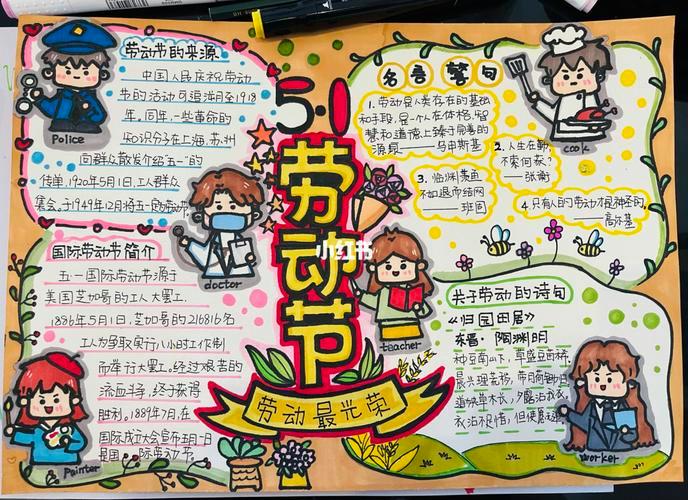 劳动节的来源
中国人民庆祝劳动
节的活动可追溯月至1918
年,同年,一些革命的
知识分子在上海,苏州
向群众散发介绍"五一"的
传单,1920年5月1日,工人群众
集会。于1949年12月将五一定为劳动节
Police
doctor
国际劳动节简介
五·一国际劳动节源于
美国芝加哥的工人大罢工.
1886年5月1日,芝加哥的216816名
工人为争取实行八小时工作制
而举行大罢工,经过艰苦的
流血斗争,终于获得
胜利。1889年7月,在
国际成立会宣布五月一日
是国际劳动节。
Painter
5.1
劳动节
小红书
劳动最光荣
teacher
名言警句
1. 劳动是人类存在的基础
和手段,是一个人在体格,智
慧和道德上臻于完善的
源泉——马申斯基
2. 人生在勤,
不索何获?
——张衡
3. 临渊羡鱼
不如退而结网
——班固
4.只有人的劳动才是神圣的.
——高尔基
cook
关于劳动的诗句
《归园田居》
东晋·陶渊明
种豆南山下,草盛豆苗稀
晨兴理荒秽,带月荷锄归
道狭草木长,夕露沾我衣
衣沾不足惜,但使愿无违
worker